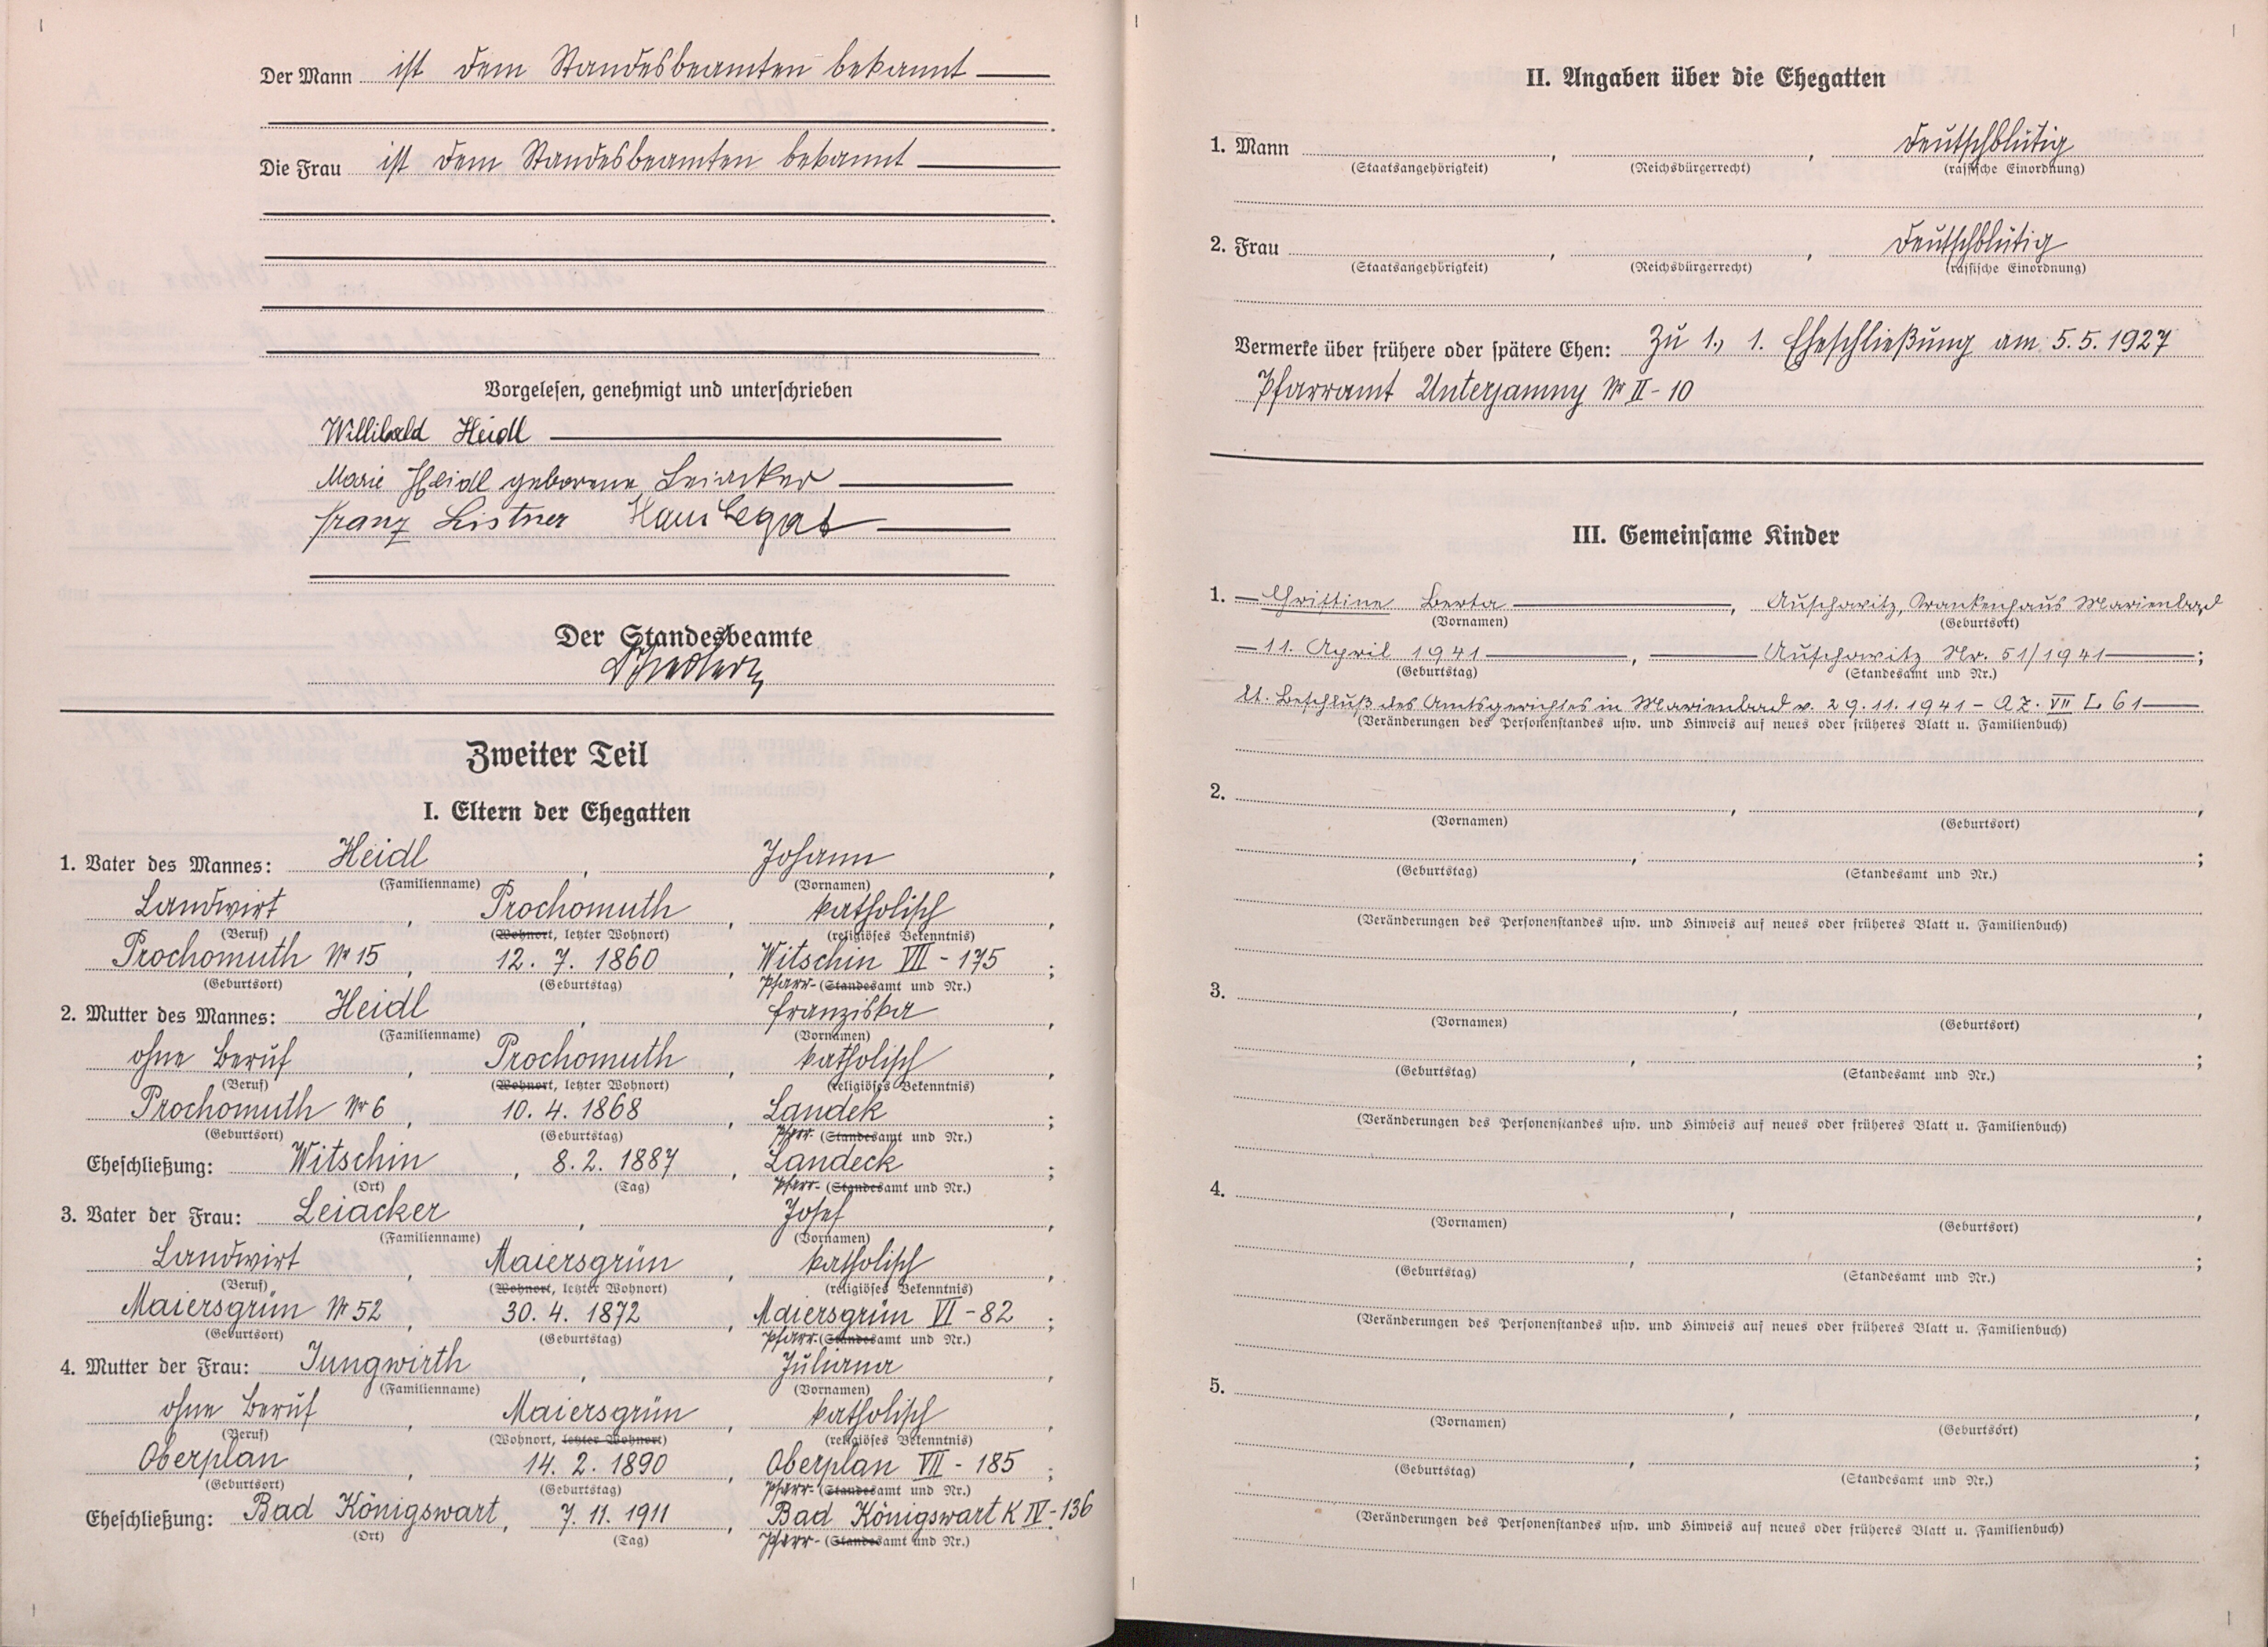 Der Mann ist dem Standesbeamten bekannt
Die Frau ist dem Standesbeamten bekannt
Vorgelesen, genehmigt und unterschrieben
Willibald Heidl
Marie Heidl geborene Leiacker
Franz Listner Hans Legat
Der Standesbeamte
Zweiter Teil
I. Eltern der Ehegatten
1. Vater des Mannes: Heidl, Johann,
(Familienname) (Vornamen)
Landwirt, Prochomuth, katholisch,
(Beruf) (Wohnort, letzter Wohnort) (religiöses Bekenntnis)
Prochomuth Nr 15, 12. 7. 1860, Witschin VII - 175;
(Geburtsort) (Geburtstag) Pfarr- (Standesamt und Nr.)
2. Mutter des Mannes: Heidl, Franziska,
(Familienname) (Vornamen)
ohne Beruf, Prochomuth, katholisch,
(Beruf) (Wohnort, letzter Wohnort) (religiöses Bekenntnis)
Prochomuth Nr 6, 10. 4. 1868, Landek;
(Geburtsort) (Geburtstag) Pfarr- (Standesamt und Nr.)
Eheschließung: Witschin, 8. 2. 1887, Landeck;
(Ort) (Tag) Pfarr- (Standesamt und Nr.)
3. Vater der Frau: Leiacker, Josef,
(Familienname) (Vornamen)
Landwirt, Maiersgrün, katholisch,
(Beruf) (Wohnort, letzter Wohnort) (religiöses Bekenntnis)
Maiersgrün Nr 52, 30. 4. 1872, Maiersgrün VI - 82;
(Geburtsort) (Geburtstag) Pfarr- (Standesamt und Nr.)
4. Mutter der Frau: Jungwirth, Juliana,
(Familienname) (Vornamen)
ohne Beruf, Maiersgrün, katholisch,
(Beruf) (Wohnort, letzter Wohnort) (religiöses Bekenntnis)
Oberplan, 14. 2. 1890, Oberplan VII - 185;
(Geburtsort) (Geburtstag) Pfarr- (Standesamt und Nr.)
Eheschließung: Bad Königswart, 7. 11. 1911, Bad Königswart K IV - 136
(Ort) (Tag) Pfarr- (Standesamt und Nr.)
II. Angaben über die Ehegatten
1. Mann , , deutschblütig
(Staatsangehörigkeit) (Reichsbürgerrecht) (rassische Einordnung)
2. Frau , , deutschblütig
(Staatsangehörigkeit) (Reichsbürgerrecht) (rassische Einordnung)
Vermerke über frühere oder spätere Ehen: Zu 1., 1. Eheschließung am 5. 5. 1927
Pfarramt Unterjamny Nr II - 10
III. Gemeinsame Kinder
1. Christine Berta, Auschowitz, Krankenhaus Marienbad
(Vornamen) (Geburtsort)
11. April 1941, Auschowitz Nr. 51/1941;
(Geburtstag) (Standesamt und Nr.)
lt. Beschluß des Amtsgerichtes in Marienbad v. 29. 11. 1941 - AZ. VII L 61
(Veränderungen des Personenstandes usw. und Hinweis auf neues oder früheres Blatt u. Familienbuch)
2. , ,
(Vornamen) (Geburtsort)
, ;
(Geburtstag) (Standesamt und Nr.)
(Veränderungen des Personenstandes usw. und Hinweis auf neues oder früheres Blatt u. Familienbuch)
3. , ,
(Vornamen) (Geburtsort)
, ;
(Geburtstag) (Standesamt und Nr.)
(Veränderungen des Personenstandes usw. und Hinweis auf neues oder früheres Blatt u. Familienbuch)
4. , ,
(Vornamen) (Geburtsort)
, ;
(Geburtstag) (Standesamt und Nr.)
(Veränderungen des Personenstandes usw. und Hinweis auf neues oder früheres Blatt u. Familienbuch)
5. , ,
(Vornamen) (Geburtsort)
, ;
(Geburtstag) (Standesamt und Nr.)
(Veränderungen des Personenstandes usw. und Hinweis auf neues oder früheres Blatt u. Familienbuch)